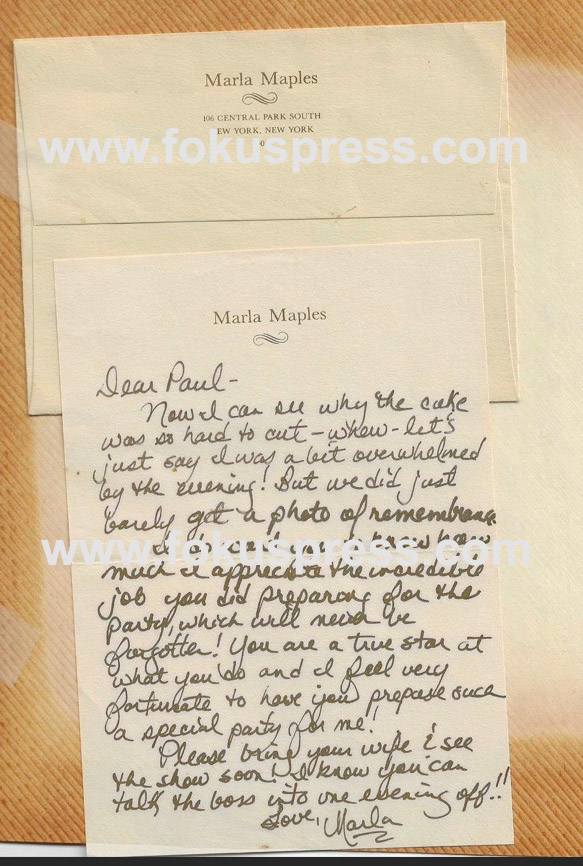 Marla Maples
106 CENTRAL PARK SOUTH
EW YORK, NEW YORK
0
www.fokuspress.com
Marla Maples
Dear Paul -
Now I can see why the cake
was so hard to cut - whew - let's
just say I was a bit overwhelmed
by the evening! But we did just
barely get a photo of remembrance.
I do want you to know how
www.fokuspress.com
much I appreciate the incredible
job you did preparing for the
party, which will never be
forgotten! You are a true star at
what you do and I feel very
fortunate to have you prepare such
a special party for me!
Please bring your wife & see
the show soon! I know you can
talk the boss into one evening off!!
Love, Marla